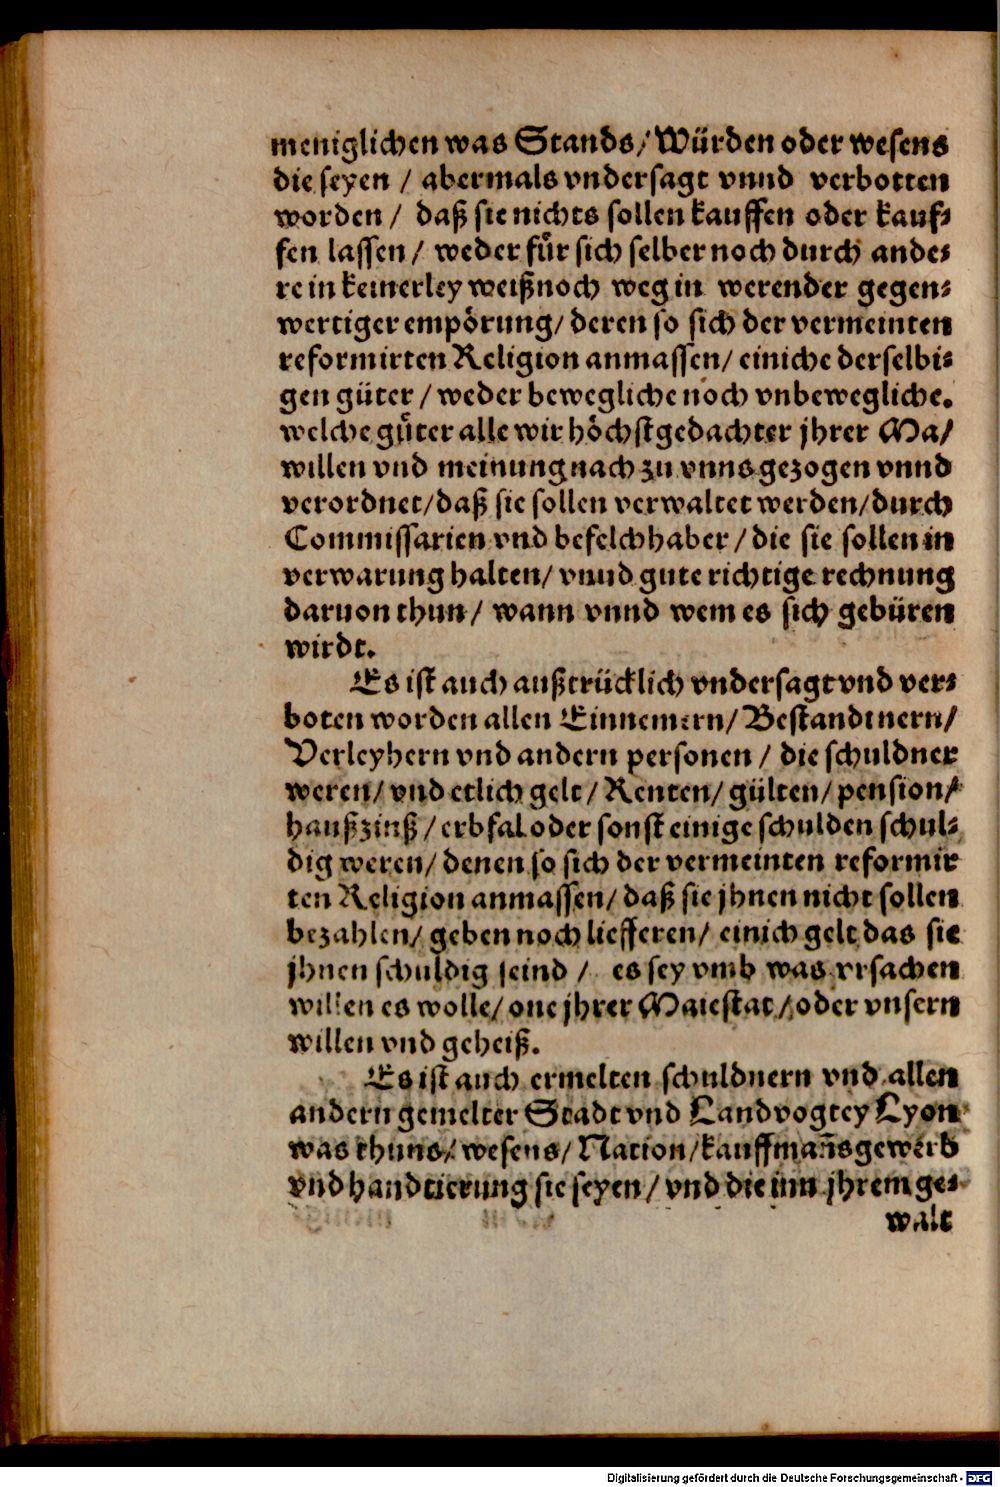 meniglichen was Stands/ Würden oder wesens
die seyen / abermals vndersagt vnnd verbotten
worden / daß sie nichts sollen kauffen oder kauf⸗
fen lassen / weder für sich selber noch durch ande⸗
re in keinerley weiß noch weg in werender gegen⸗
wertiger empörung/ deren so sich der vermeinten
reformirten Religion anmassen/ einiche derselbi⸗
gen güter / weder bewegliche noch vnbewegliche.
welche güter alle wir höchstgedachter jhrer Ma/
willen vnd meinung nach zu vnns gezogen vnnd
verordnet/daß sie sollen verwaltet werden/durch
Commissarien vnd befelchhaber / die sie sollen in
verwarung halten/ vnnd gute richtige rechnung
daruon thun/ wann vnnd wem es sich gebüren
wirdt.
Es ist auch außtrücklich vndersagt vnd ver⸗
boten worden allen Einnemern/ Bestandtnern/
Verleyhern vnd andern personen / die schuldner
weren/ vnd etlich gelt/ Renten/ gülten/ pension/
haußzinß / erbfal oder sonst einige schulden schul⸗
dig weren/ denen so sich der vermeinten reformir
ten Religion anmassen/ daß sie jhnen nicht sollen
bezahlen/ geben noch liefferen/ einich gelt das sie
jhnen schuldig seind / es sey vmb was vrsachen
willen es wolle/ one jhrer Maiestat / oder vnsern
willen vnd geheiß.
Es ist auch ermelten schuldnern vnd allen
andern gemelter Stadt vnd Landvogtey Lyon
was thuns/ wesens/ Nation/kauffmañsgewerb
vnd handtierung sie seyen/ vnd die inn jhrem ge⸗
walt
Digitalisierung gefördert durch die Deutsche Forschungsgemeinschaft - DFG